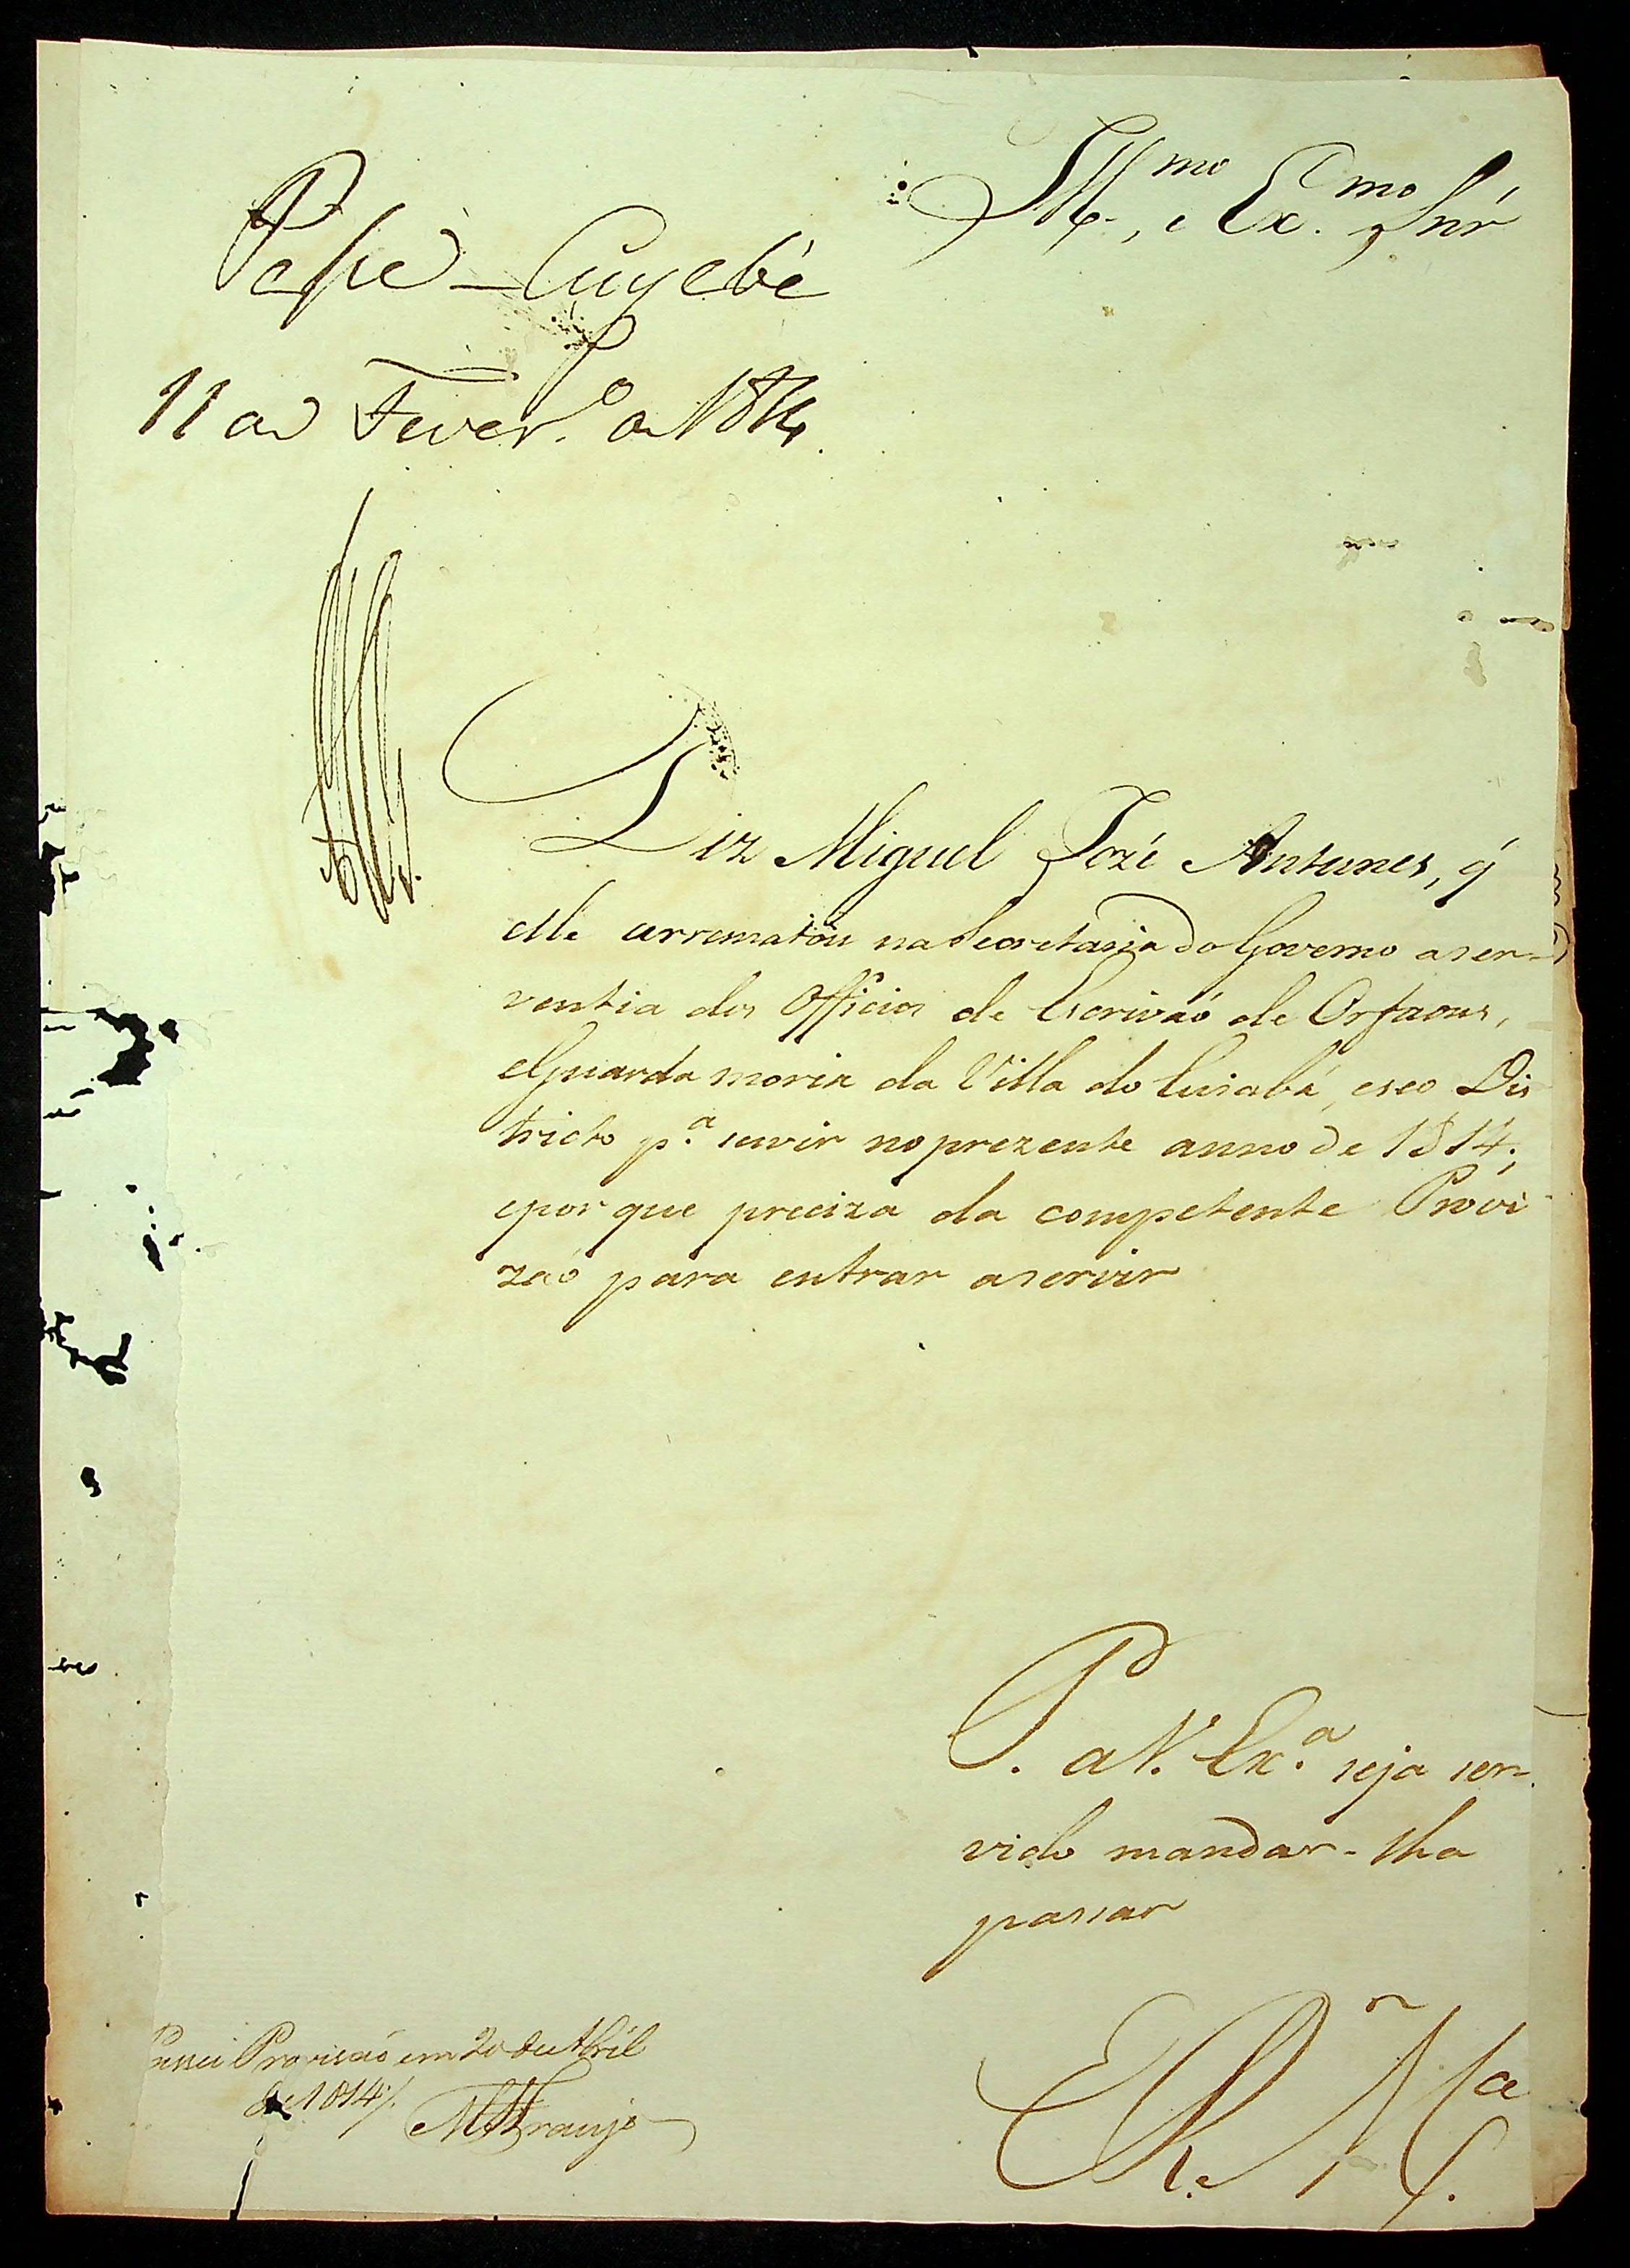 Ill.mo, e Ex.mo Snr
Passe - Cuyabá
11 de Fever.o de 1814.
Diz Miguel Jozé Antunes, q'
elle arrematou na Secretaria do Governo a ser-
ventia dos Officios de Escrivaõ de Orfaons,
e Guarda moria da Villa do Cuiabá, e seo Dis
tricto p.a servir no prezente anno de 1814;
e por que preciza da competente Provi
zaõ para entrar a servir
P. a V. Ex.a seja ser-
vido mandar-lha
passar
E R. M.ce
Passei Provisaõ em 20 de Abril
de 1814/.
Araujo